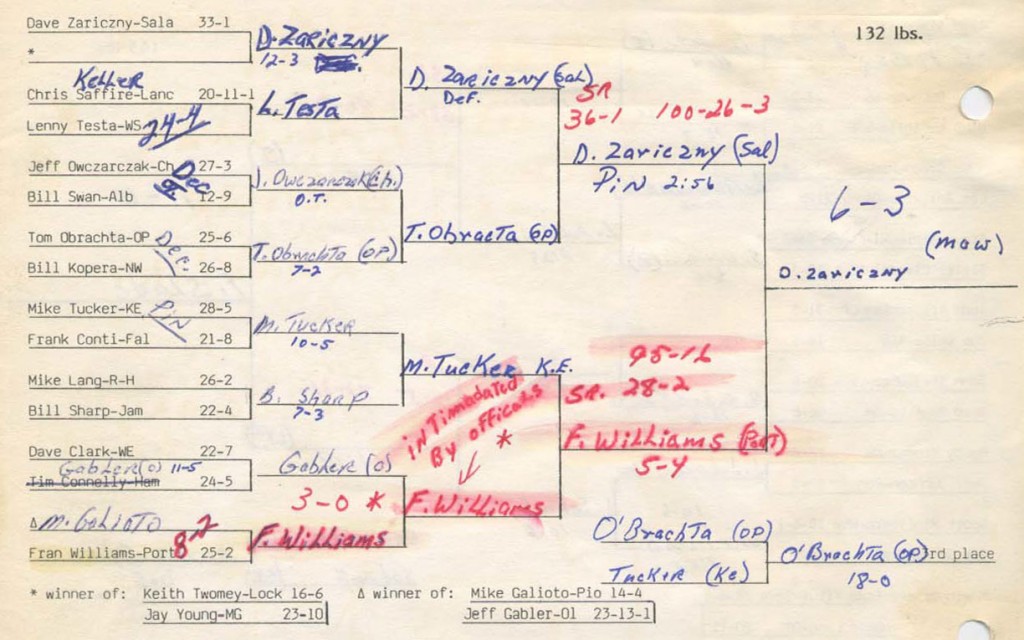 132 lbs.
Dave Zariczny-Sala 33-1
*
D. Zariczny
12-3
Keller
Chris Saffire-Lanc 20-11-1
Lenny Testa-WS 24-4
L. Testa
D. Zariczny (Sal)
Def.
SR
36-1 100-26-3
Jeff Owczarczak-Ch 27-3
Dec
Bill Swan-Alb 12-9
J. Owczarczak (Ch.)
O.T.
D. Zariczny (Sal)
Pin 2:56
Tom Obrachta-OP 25-6
Dec.
Bill Kopera-NW 26-8
T. Obrachta (OP)
7-2
T. Obracta (OP)
6-3
(MOW)
D. Zariczny
Mike Tucker-KE 28-5
Pin
Frank Conti-Fal 21-8
M. Tucker
10-5
Mike Lang-R-H 26-2
Bill Sharp-Jam 22-4
B. Sharp
7-3
M. Tucker K.E.
95-16
SR. 28-2
inTimadated
By officals
*
F. Williams (Port)
5-4
Dave Clark-WE 22-7
Gabler (O) 11-5
Tim Connelly-Ham 24-5
Gabler (O)
3-0 *
F. Williams
Δ M. Galiato
8-2
Fran Williams-Port 25-2
F. Williams
O'Brachta (OP)
Tucker (KE)
O'Brachta (OP) 3rd place
18-0
* winner of: Keith Twomey-Lock 16-6
Jay Young-MG 23-10
Δ winner of: Mike Galioto-Pio 14-4
Jeff Gabler-Ol 23-13-1